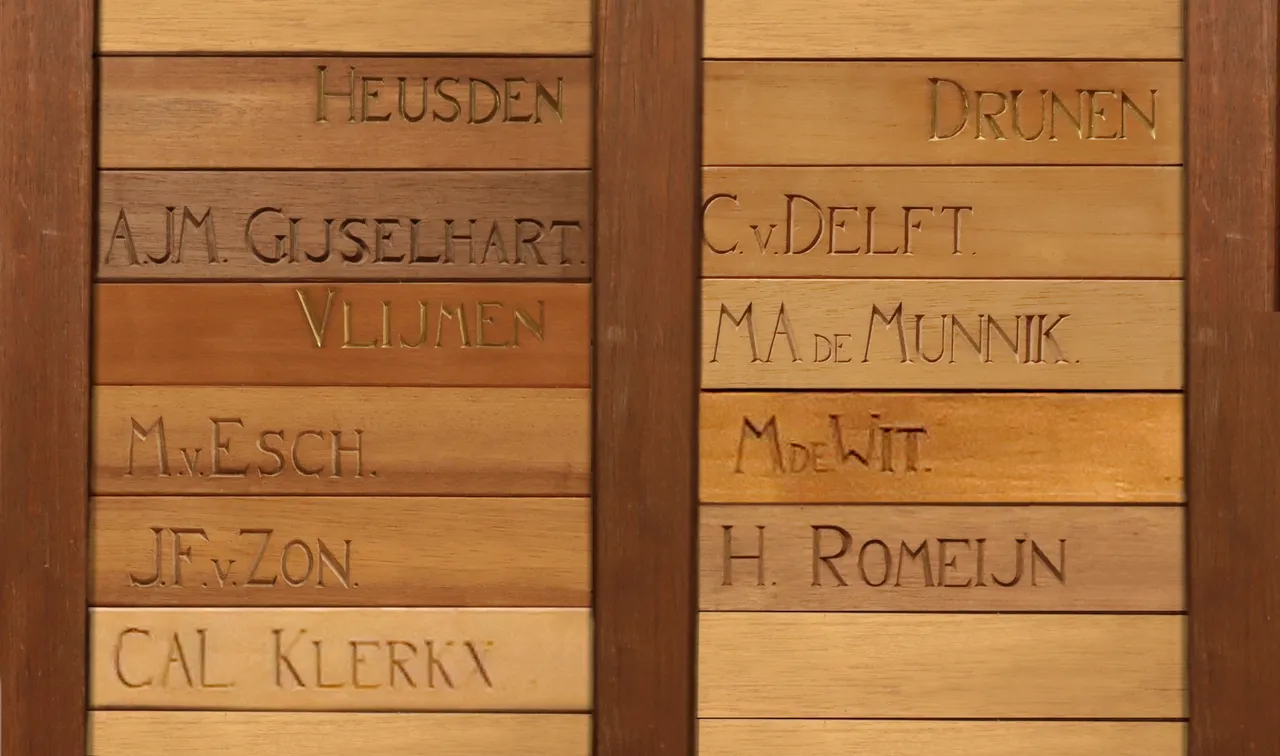 HEUSDEN
A.J.M. GIJSELHART.
VLIJMEN
M.v.ESCH.
J.F.v.ZON.
CAL KLERKX
DRUNEN
C.v.DELFT.
MA DE MUNNIK.
M DE WIT.
H. ROMEIJN